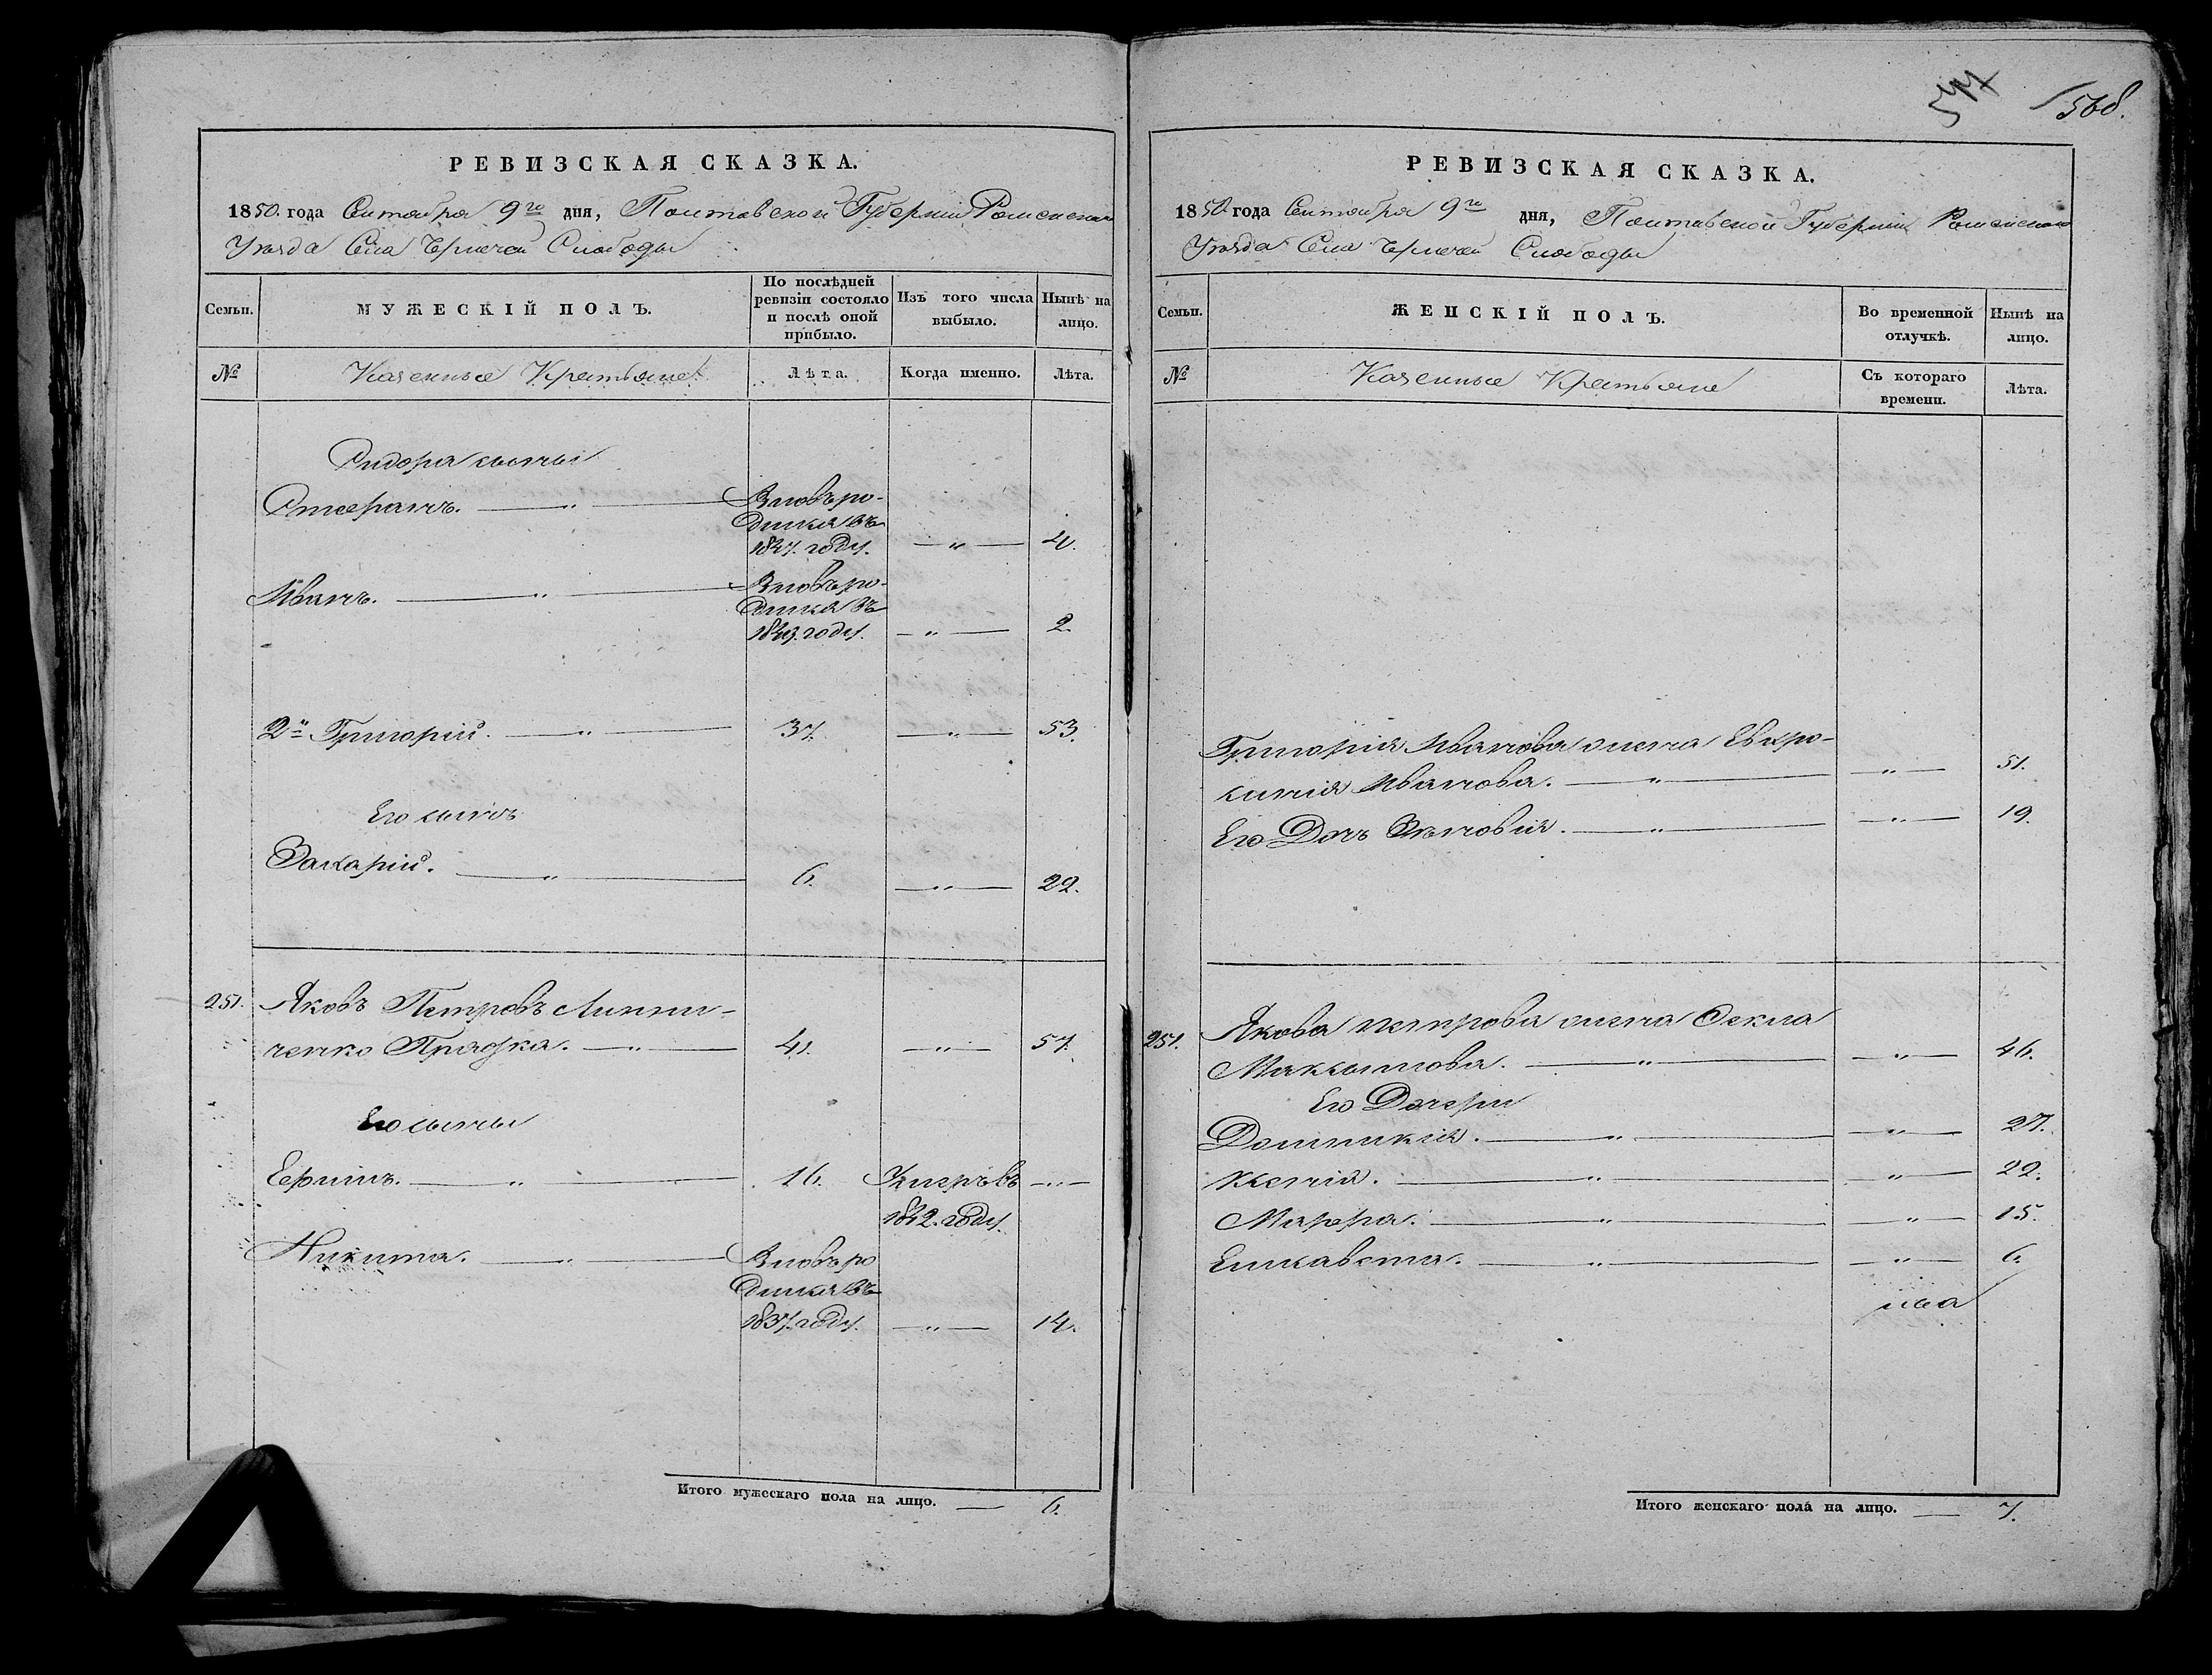 577
568.
РЕВИЗСКАЯ СКАЗКА.
1850. года Сентября 9го дня, Полтавской Губернии Роменскаго
Уезда Села Чернечей Слободы
Семьи. МУЖЕСКІЙ ПОЛЪ. По послѣдней ревизіи состояло и послѣ оной прибыло. Изъ того числа выбыло. Нынѣ на лицо.
№ Казенные Крестьяне Лѣта. Когда именно. Лѣта.
Сидора сыны
Стефанъ. — „ — Вновь ро-
дился въ
1847. году. — „ — 4.
Иванъ. — „ — Вновь ро-
дился въ
1849. году. — „ — 2.
2й Григорій. — „ — 37. — „ — 53.
Его сынъ
Захарій. — „ — 6. — „ — 22.
251. Яковъ Петровъ
ченко Прядка. — „ — 41. — „ — 57.
Его сыны
Ефимъ. — „ — 16. Умеръ въ — „ —
1842. году.
Никита. — „ — Вновь ро
дился въ
1837. году. — „ — 14.
Итого мужескаго пола на лицо. — 6.
РЕВИЗСКАЯ СКАЗКА.
1850 года Сентября 9го дня, Полтавской Губернии Роменскаго
Уезда Села Чернечей Слободы
Семьи. ЖЕНСКІЙ ПОЛЪ. Во временной отлучкѣ. Нынѣ на лицо.
№ Казенные Крестьяне Съ котораго времени. Лѣта.
Григорія Иванова жена Евфро-
синія Иванова. — „ — — „ — 51.
Его Дочь Зѣновія. — „ — — „ — 19.
251. Якова Петрова жена Фекла
Максимова. — „ — — „ — 46.
Его Дочери
Домникія. — „ — — „ — 27.
Ксенія. — „ — — „ — 22.
Марфа. — „ — — „ — 15.
Елисавета. — „ — — „ — 6.
Итого женскаго пола на лицо. — 7.